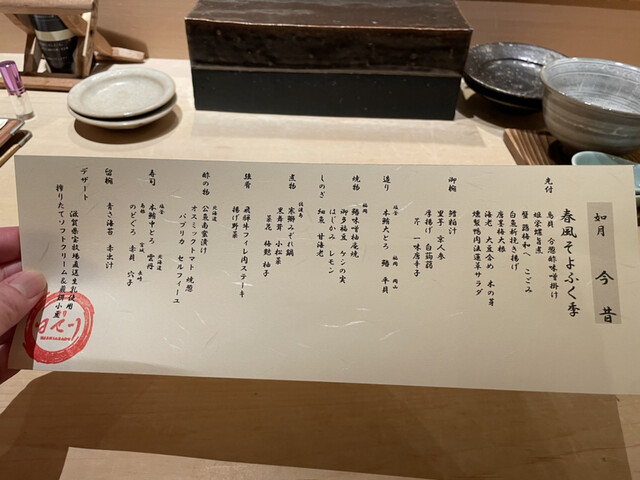 如月 今昔
春風そよふく季
先付
鳥貝 分葱酢味噌掛け
姫栄螺旨煮
蟹 蕗梅和へ こごみ
白魚新挽き揚げ
唐墨梅大根
海老 大豆含め 木の芽
燻製鴨肉法蓮草サラダ
御椀
鱈粕汁
里芋 京人参
厚揚げ 白蒟蒻
芹 一味唐辛子
造り
塩釜 福岡 岡山
本鮪大とろ 鰆 平貝
焼物
福岡
鰆味噌柚庵焼
御多福豆 ケシの実
はじかみ レモン
しのざ
細魚 甘海老
煮物
佐渡島
寒鰤みぞれ鍋
里舞茸 小松菜
菜花 梅麩 柚子
強肴
飛騨牛フィレ肉ステーキ
揚げ野菜
酢の物
北海道
公魚南蛮漬け
オスミックトマト 焼葱
パプリカ セルフィーユ
寿司
塩釜 北海道
本鮪中とろ 雲丹
のどぐろ 赤貝 穴子
留椀
青さ海苔 赤出汁
デザート
滋賀県宝牧場直送生乳使用
搾りたてソフトクリーム&最餅小豆